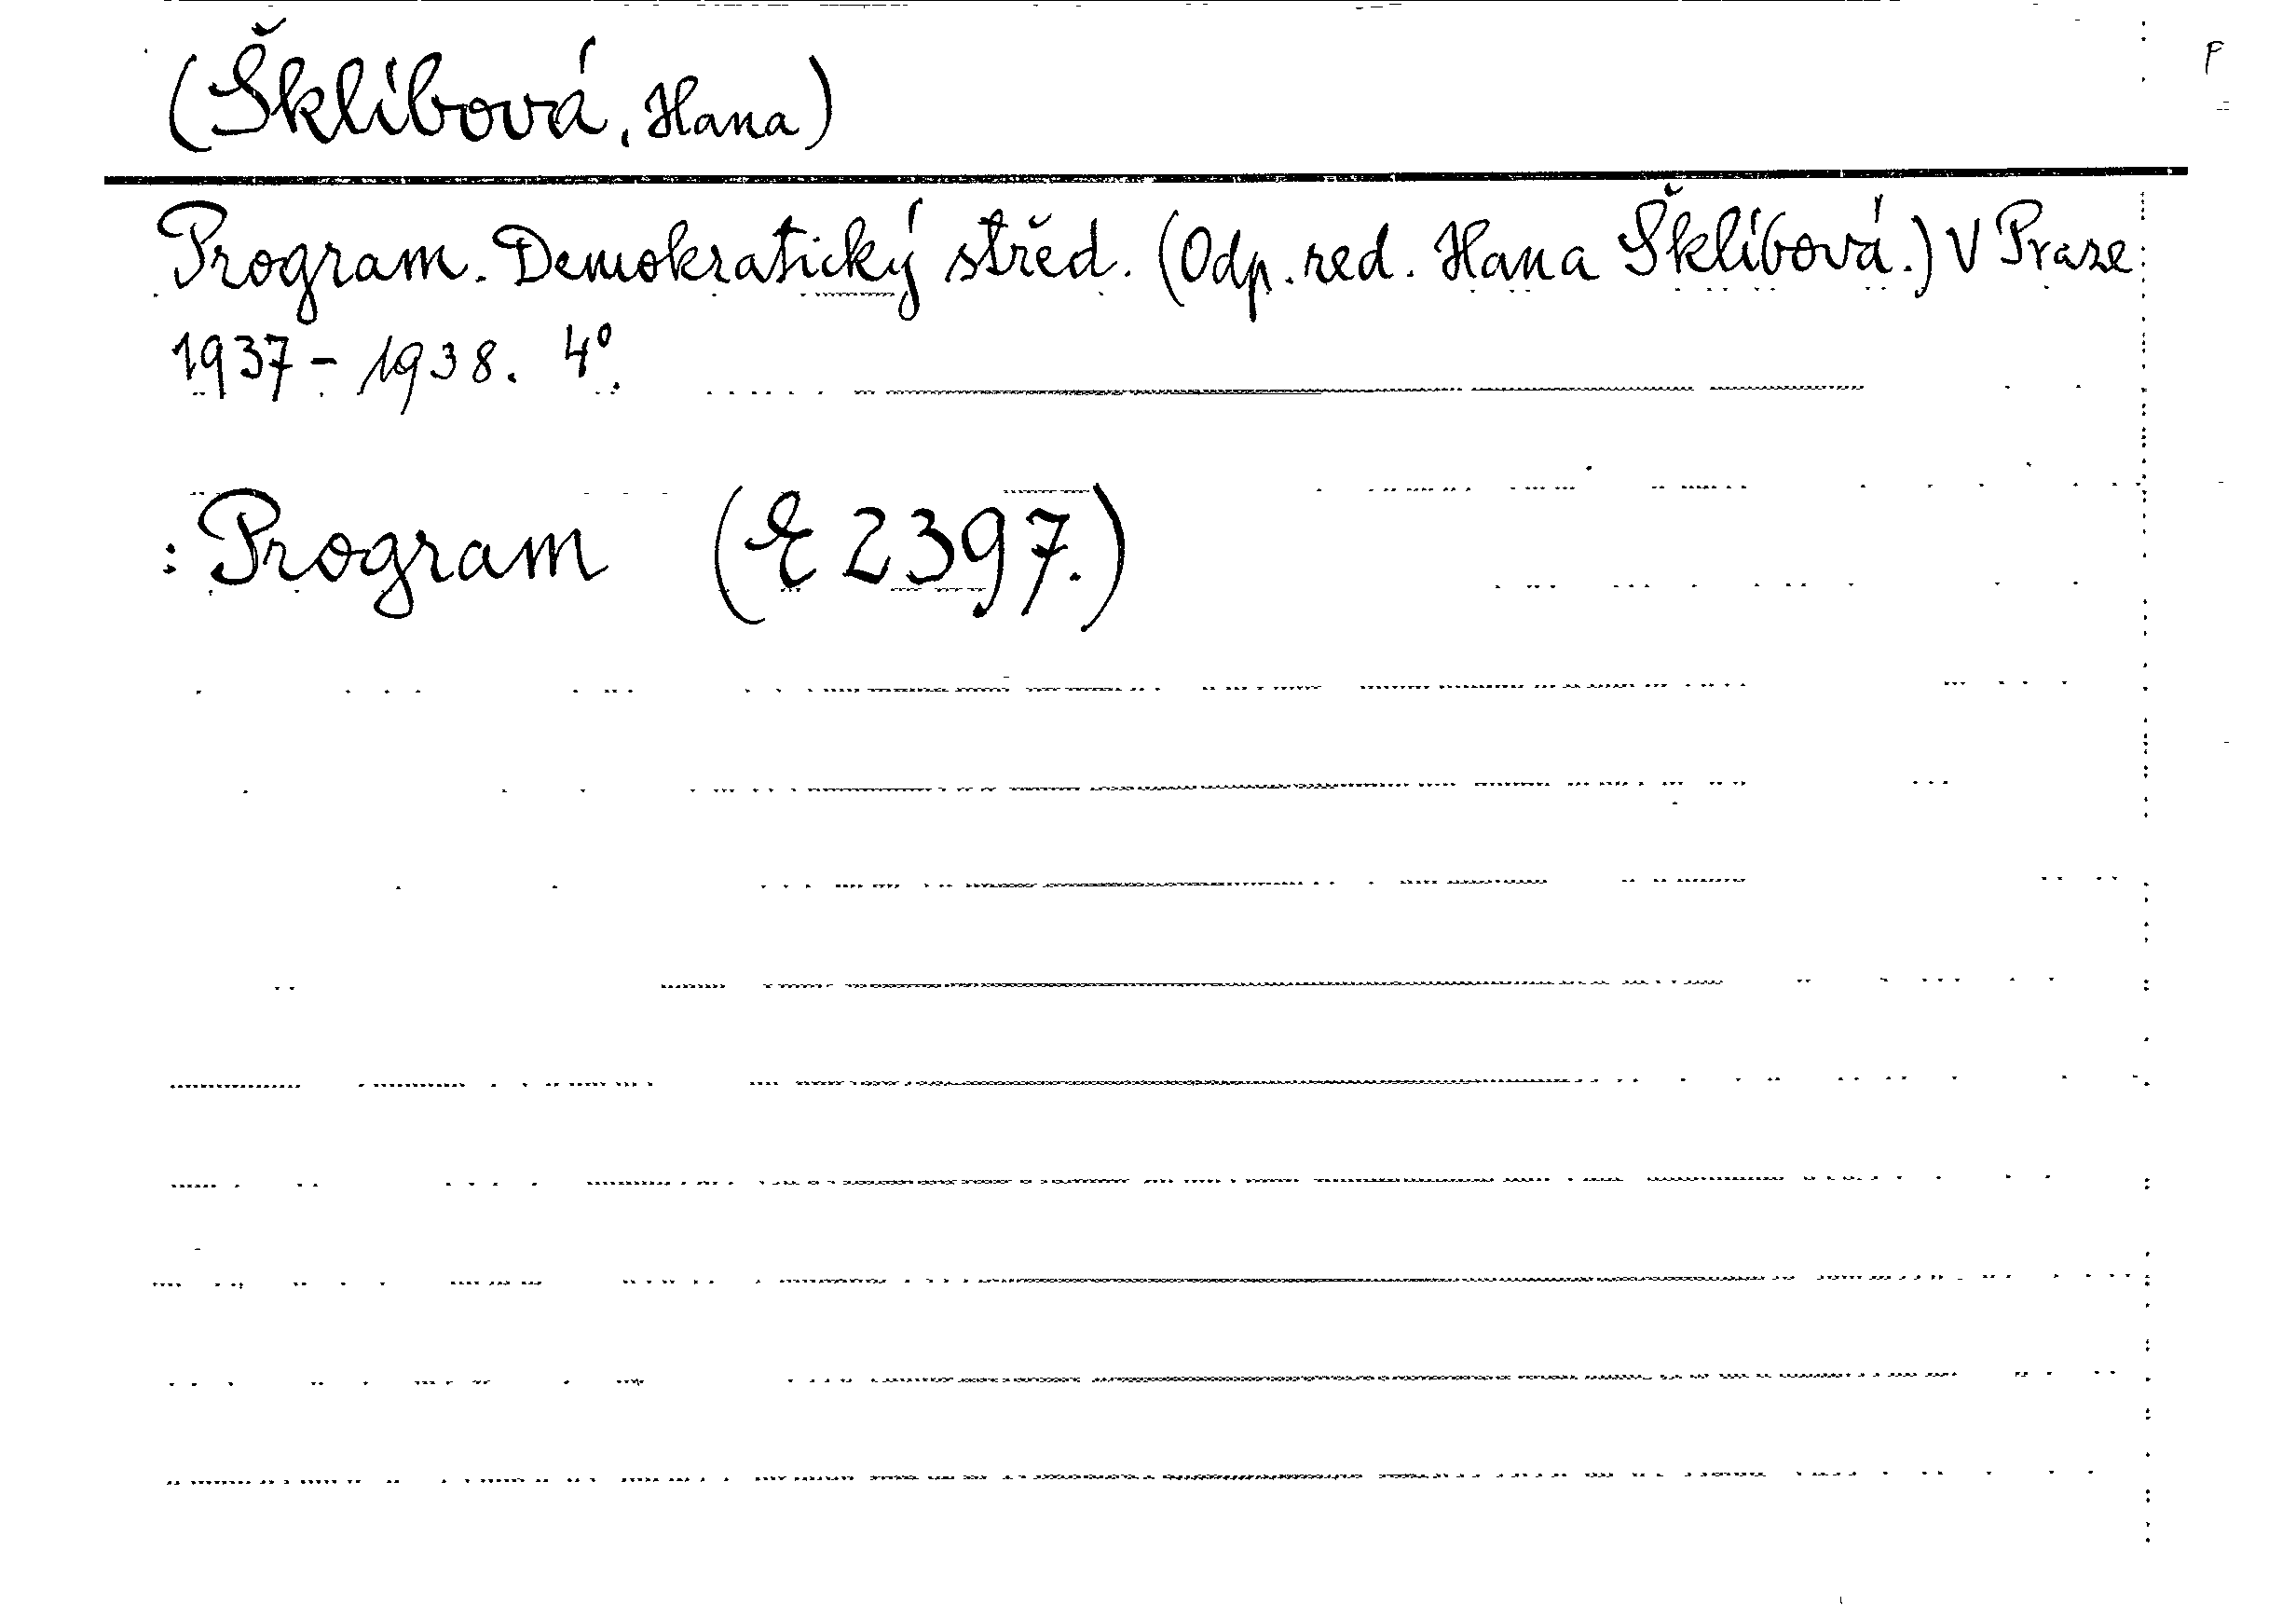 (Šklíbová, Hana)
Program. Demokratický střed. (Odp. red. Hana Šklíbová.) V Praze
1937-1938. 4°.
: Program (E 2397.)